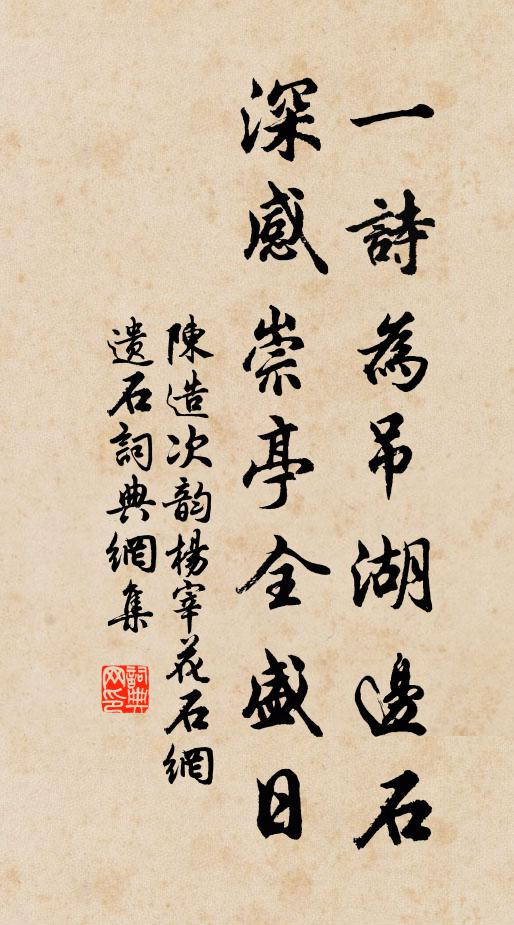 一詩為吊湖邊石
深感崇亭全盛日
陳造次韵楊宰花石網
遗石詞典網集
詞典网印